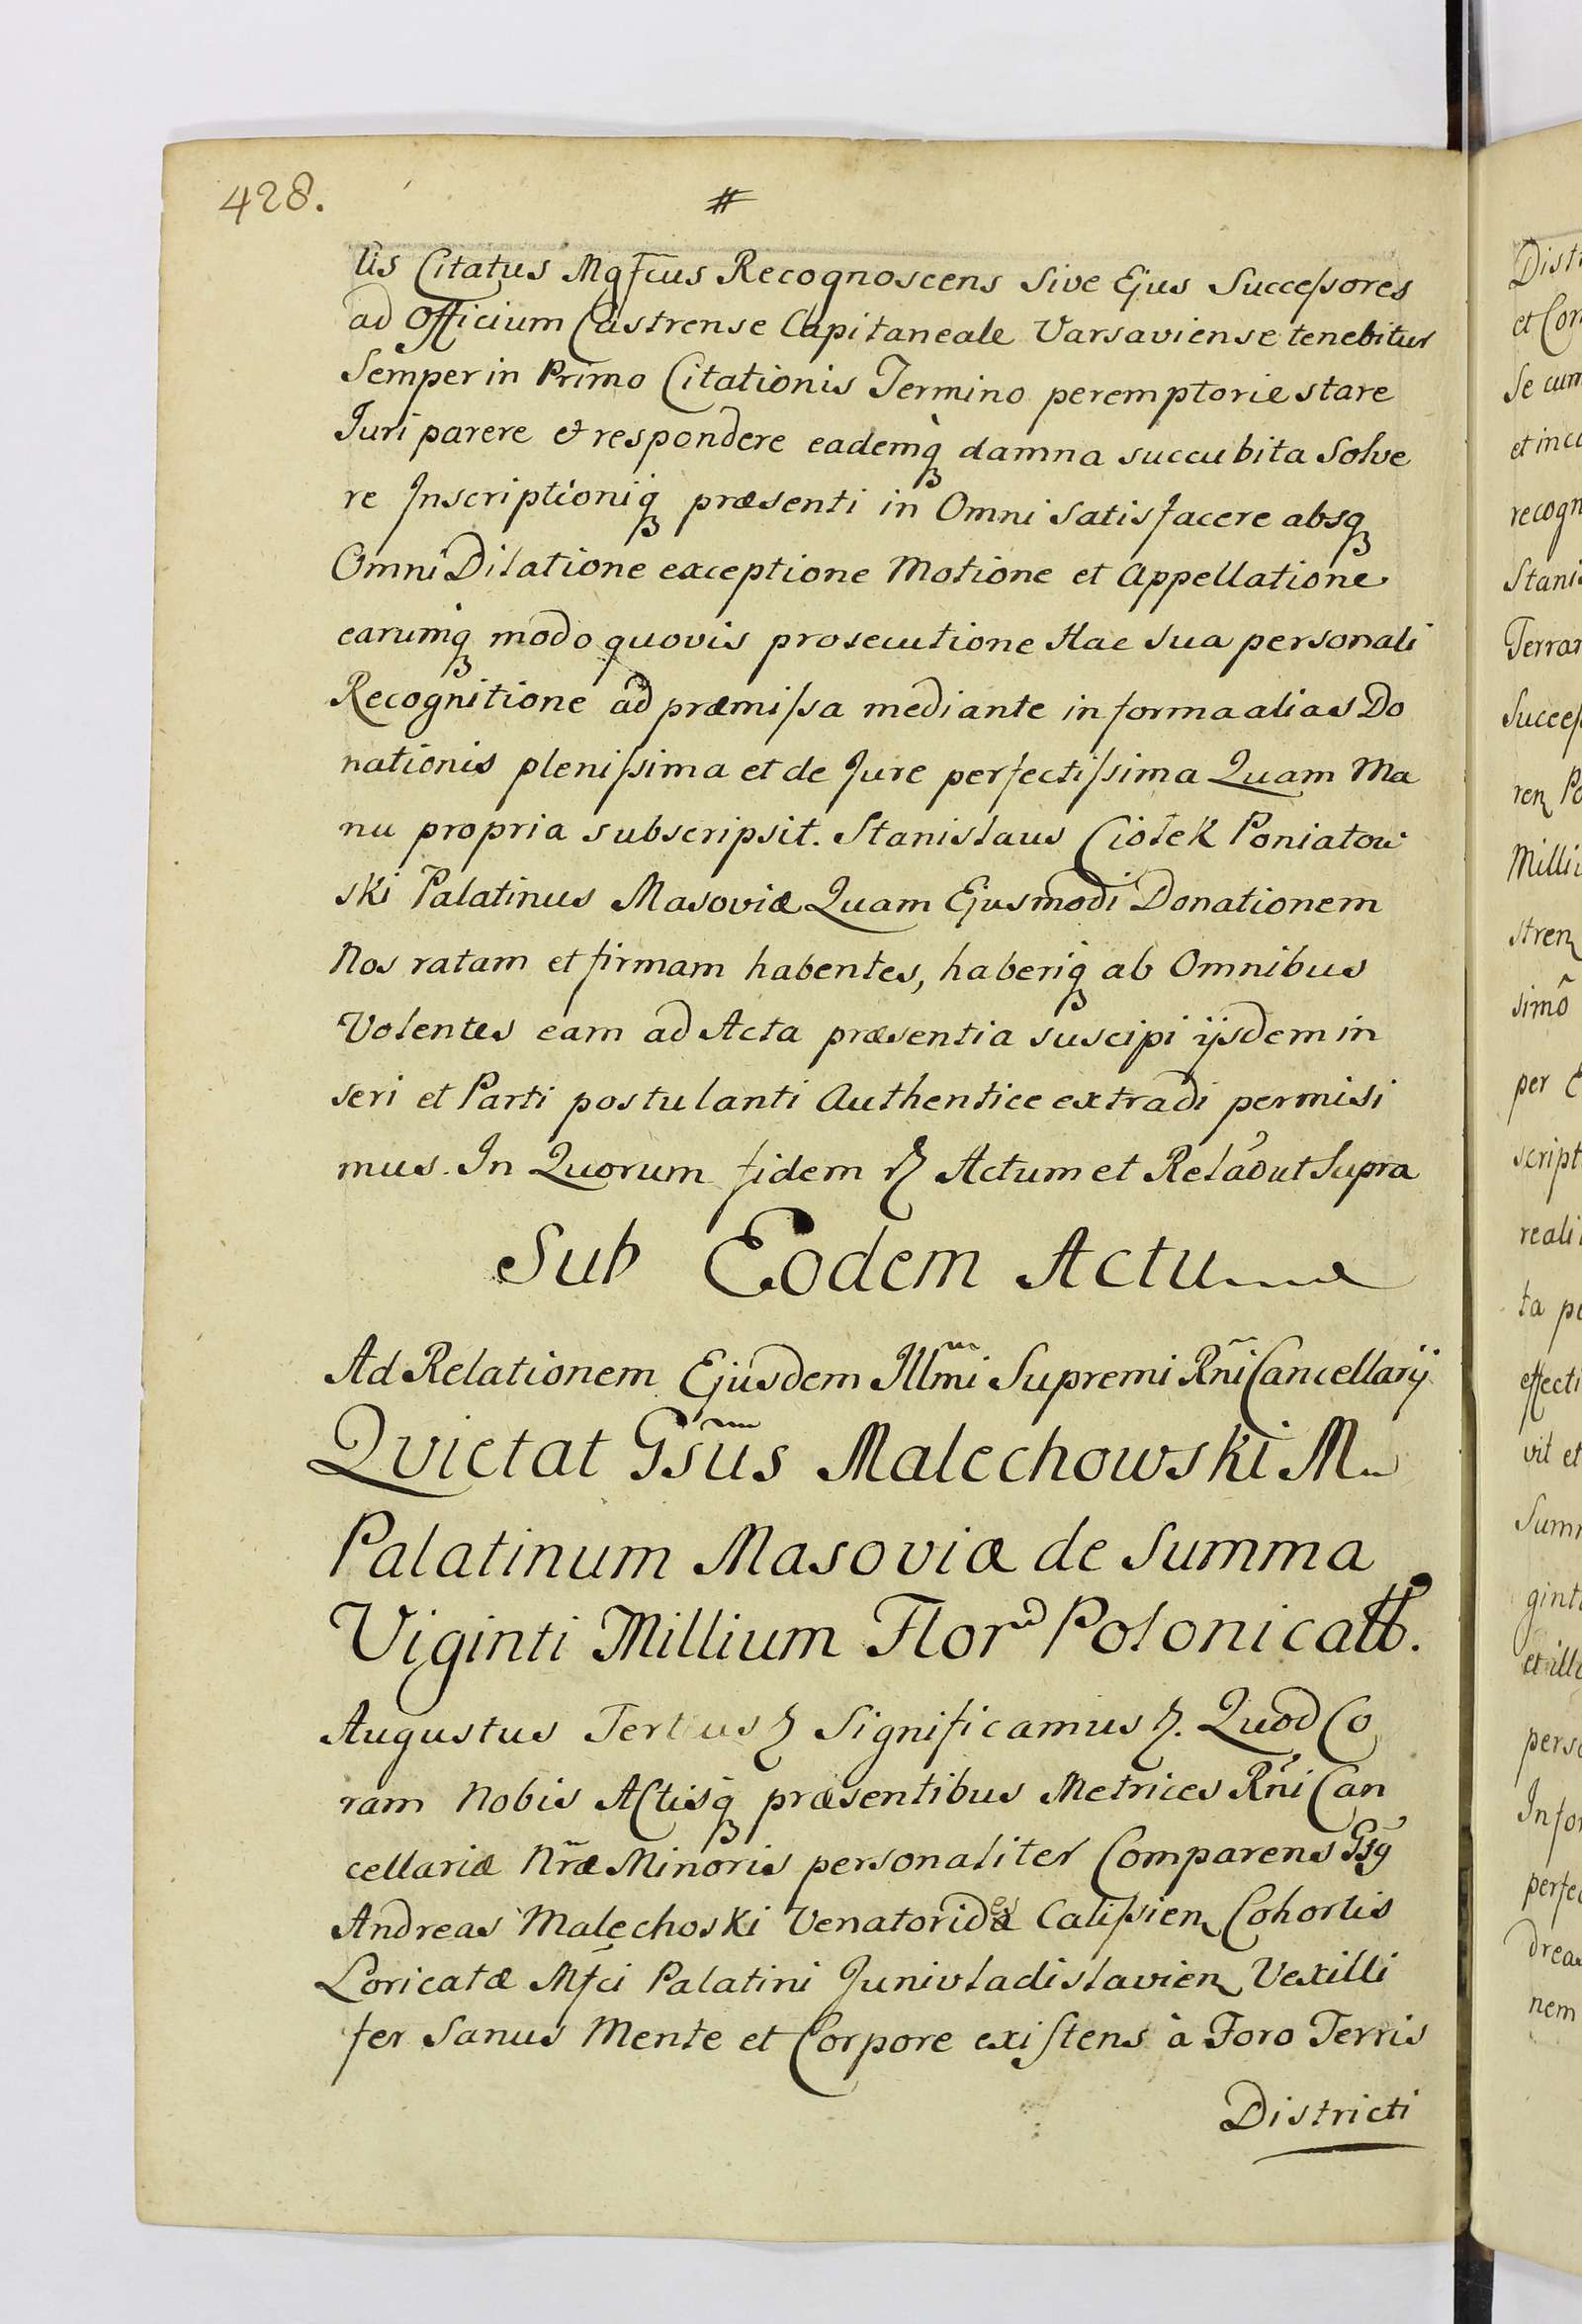 428.
#
tis Citatus Mgfcus Recognoscens Sive Ejus Successores
ad Officium Castrense Capitaneale Varsaviense tenebitur
Semper in Primo Citationis Termino peremptorie stare
Juri parere et respondere eademq́ꝫ damna succubita Solve
re Inscriptioniqꝫ præsenti in Omni Satisfacere absqꝫ
Omni Dilatione exceptione Motione et Appellatione
earumqꝫ modo quovis prosecutione Hac Sua personali
Recognitione ad præmissa mediante in forma alias Do
nationis plenissima et de Jure perfectissima Quam Ma
nu propria subscripsit. Stanislaus Ciołek Poniatow
ski Palatinus Masoviæ Quam Ejusmodi Donationem
Nos ratam et firmam habentes, haberiqꝫ ab Omnibus
Volentes eam ad Acta præsentia suscipi ijsdem in
seri et Parti postulanti Authentice extradi permisi
mus. In Quorum fidem ꝛ Actum et Relão ut Supra
Sub Eodem Actu
Ad Relationem Ejusdem Illm̃i Supremi Rñi Cancellarij
Qvietat Gsũs Malechowski M
Palatinum Masoviæ de Summa
Viginti Millium Flor Polonicaꝝ.
Augustus Tertius ꝛ Significamus ꝛ. Quod Co
ram Nobis Actisqꝫ præsentibus Metrices Rñi Can
cellariæ Nr̃æ Minoris personaliter Comparens Gsꝯ
Andreas Malechoski Venatorides Calissien Cohortis
Loricatæ Mfci Palatini Junivladislavien Vexilli
fer Sanus Mente et Corpore existens à Foro Terris
Districti
Distr
et Con
Se cum
recogn
Stanis
Terrar
Success
Milli
stren
simô
per E
script
reali
ta
effecti
vit et
Sum
gint
et ill
perso
Infor
perfec
drea
nem